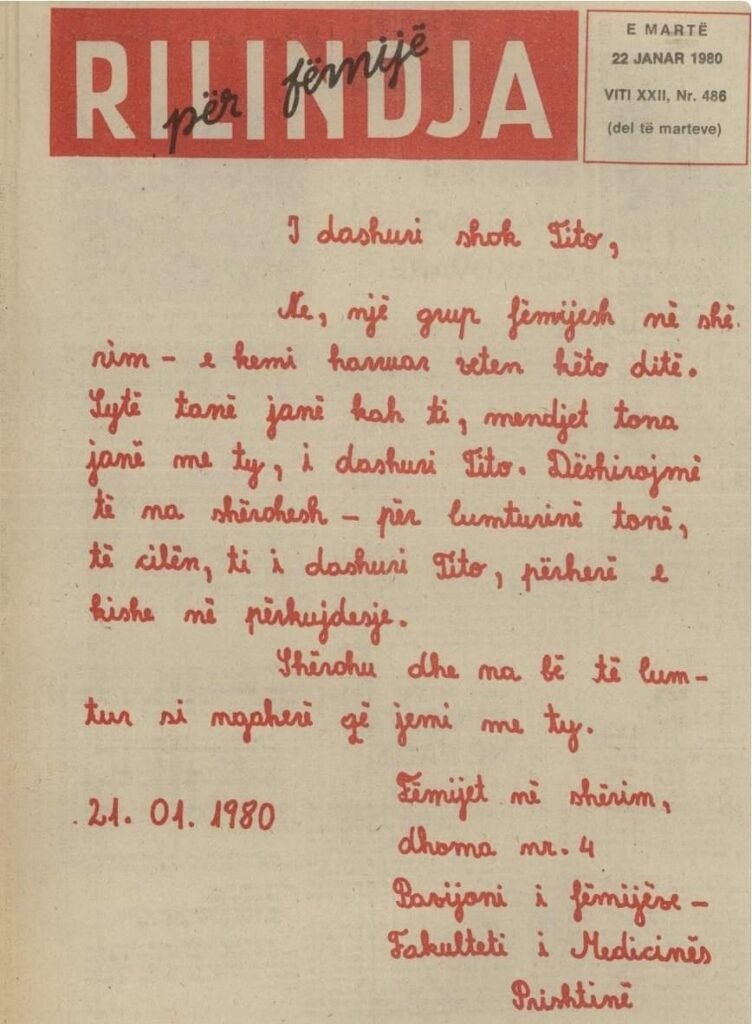 RILINDJA
për fëmijë
E MARTË
22 JANAR 1980
VITI XXII, Nr. 486
(del të marteve)
I dashuri shok Tito,
Ne, një grup fëmijesh në shë-
rim – e kemi harruar veten këto ditë.
Sytë tanë janë kah ti, mendjet tona
janë me ty, i dashuri Tito. Dëshirojmë
të na shërohesh – për lumturinë tonë,
të cilën, ti i dashuri Tito, përherë e
kishe në përkujdesje.
Shërohu dhe na bë të lum-
tur si ngaherë që jemi me ty.
21. 01. 1980
Fëmijet në shërim,
dhoma nr. 4
Pavijoni i fëmijëve –
Fakulteti i Medicinës
Prishtinë